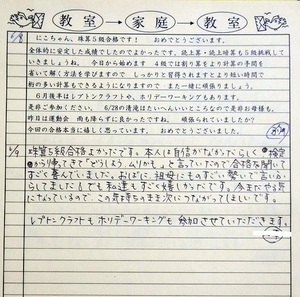 教室→家庭→教室
6/8
にこちゃん、珠算5級合格です! おめでとうございます。
全体的に安定した成績でしたのでよかったです。読上算・読上暗算も5級挑戦して
いきましょうね。 今日から始めます 4級では割り算をより計算の手間を
省いて解く方法を学びますので しっかりと習得されますとより短い時間で
桁の多い計算もできるようになりますので また一緒に頑張りましょう。
6月後半はレプトンクラフトや、ホリデーワーキングもあります。
是非ご参加ください。 6/28の清流はたいへんいいところなので是非お母様も。
昨日は運動会 雨も降らずに良かったですね。 頑張られていましたか?
今回の合格本当に嬉しく思っています。 おめでとうございました。
珠算5級合格よかったです。本人は自信がなかったらしく 検定
から帰ってきて「どうしよう ムリかも」と言っていたので合格を聞いて
すごく喜んでいました。おばに、祖母にものすごい勢いで言いふ
らしてました! でも私達もすごく嬉しかったです。今またやる気に
なっているので、この気持ちのまま次につながってほしいです。
レプトンクラフトも ホリデーワーキングも 参加させていただきます。